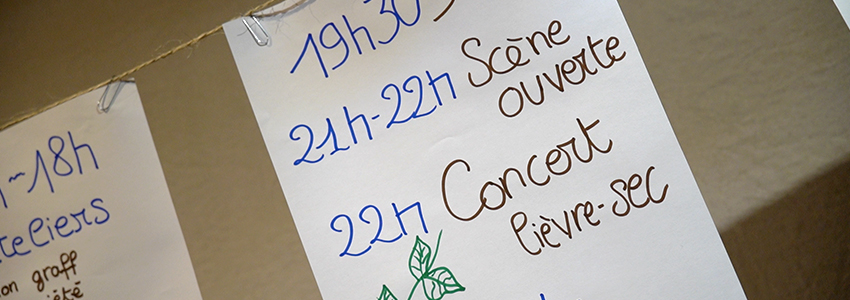 ~18h
teliers
on graff
été
19h30
21h-22h Scène
ouverte
22h Concert
lièvre-sec